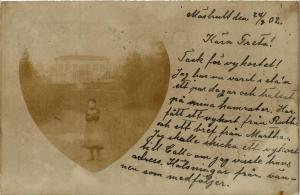 Måshult den 24/8 02.
Kära Greta!
Tack för vykortet!
Jag har nu varit i stan
ett par dagar och hälsat
på mina kamrater. Har
fått ett vykort från Ruth
och ett bref från Martha.
Jag skulle skicka ett vykort
till Calle om jag visste hans
adress. Hälsningar från
som medföljer.